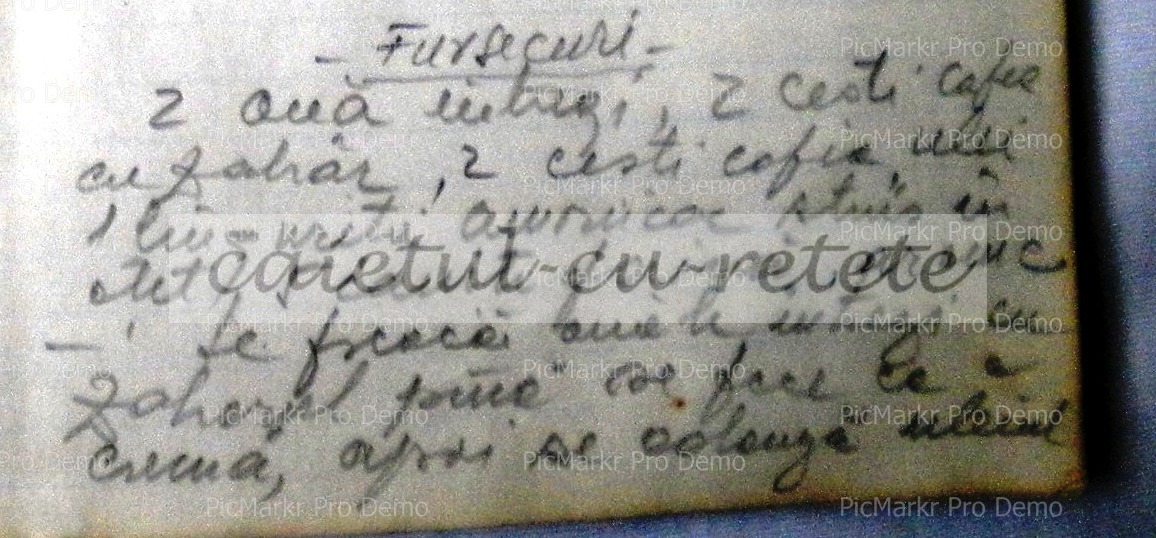 - Fursecuri -
2 ouă întregi, 2 cești cafea
cu zahăr, 2 cești cafea ulei
1 lin amoniac stins în
oțet
caietul-cu-retete
- se freacă ouăle întregi cu
zahărul până se face ca o
cremă, apoi se adaugă uleiul
PicMarkr Pro Demo